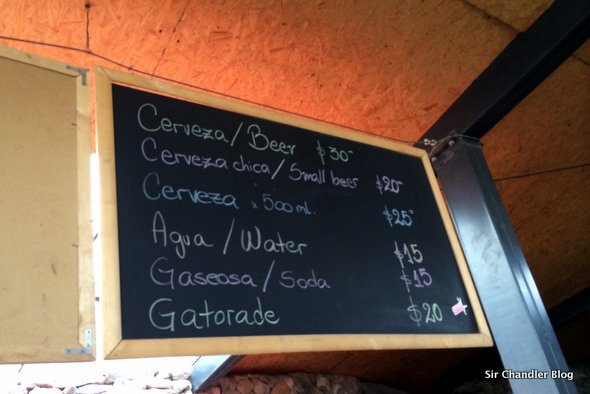 Cerveza / Beer $30-
Cerveza chica / Small beer $20-
Cerveza x 500 ml. $25-
Agua / Water $15
Gaseosa / Soda $15
Gatorade $20
Sir Chandler Blog